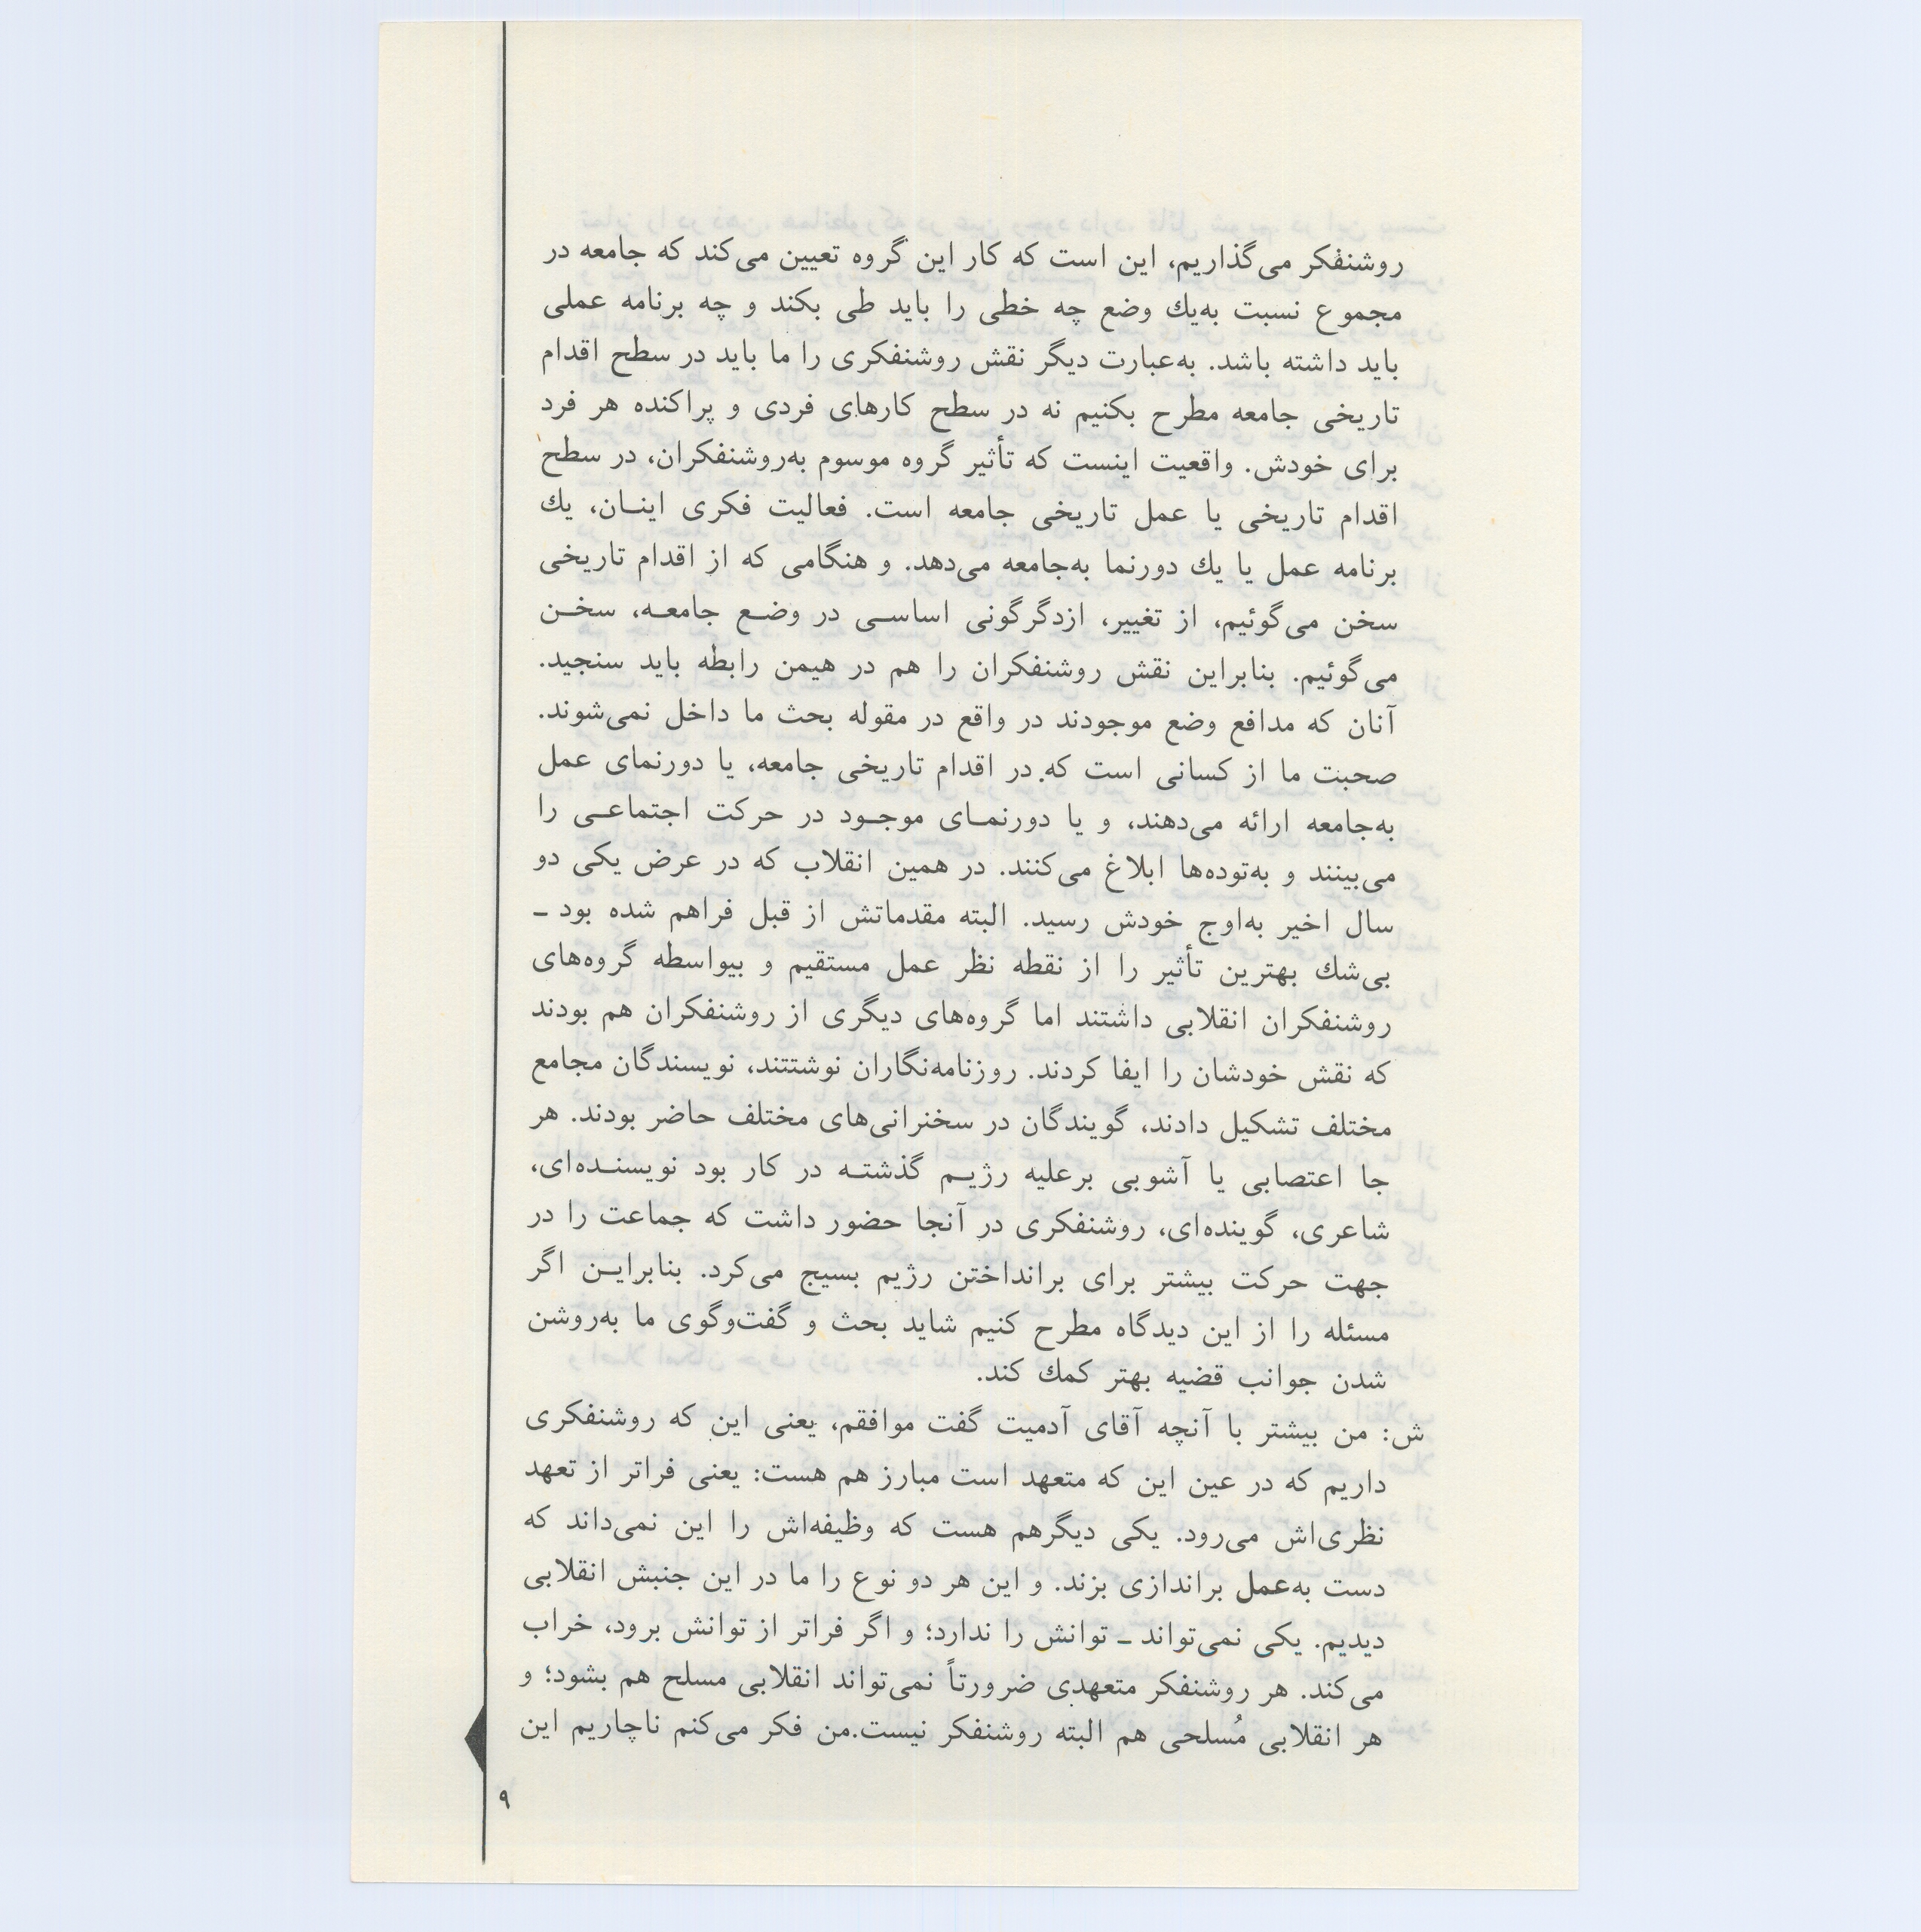 روشنفکر می‌گذاریم، این است که کار این گروه تعیین می‌کند که جامعه در
مجموع نسبت به‌یك وضع چه خطی را باید طی بکند و چه برنامه عملی
باید داشته باشد. به‌عبارت دیگر نقش روشنفکری را ما باید در سطح اقدام
تاریخی جامعه مطرح بکنیم نه در سطح کارهای فردی و پراکنده هر فرد
برای خودش. واقعیت اینست که تأثیر گروه موسوم به‌روشنفکران، در سطح
اقدام تاریخی یا عمل تاریخی جامعه است. فعالیت فکری اینـان، یك
برنامه عمل یا یك دورنما به‌جامعه می‌دهد. و هنگامی که از اقدام تاریخی
سخن می‌گوئیم، از تغییر، ازدگرگونی اساسـی در وضـع جامعـه، سخـن
می‌گوئیم. بنابراین نقش روشنفکران را هم در هیمن رابطه باید سنجید.
آنان که مدافع وضع موجودند در واقع در مقوله بحث ما داخل نمی‌شوند.
صحبت ما از کسانی است که در اقدام تاریخی جامعه، یا دورنمای عمل
به‌جامعه ارائه می‌دهند، و یا دورنمـای موجـود در حرکت اجتماعـی را
می‌بینند و به‌توده‌ها ابلاغ می‌کنند. در همین انقلاب که در عرض یکی دو
سال اخیر به‌اوج خودش رسید. البته مقدماتش از قبل فراهم شده بود ـ
بی‌شك بهترین تأثیر را از نقطه نظر عمل مستقیم و بیواسطه گروه‌های
روشنفکران انقلابی داشتند اما گروه‌های دیگری از روشنفکران هم بودند
که نقش خودشان را ایفا کردند. روزنامه‌نگاران نوشتتند، نویسندگان مجامع
مختلف تشکیل دادند، گویندگان در سخنرانی‌های مختلف حاضر بودند. هر
جا اعتصابی یا آشوبی برعلیه رژیـم گذشتـه در کار بود نویسنـده‌ای،
شاعری، گوینده‌ای، روشنفکری در آنجا حضور داشت که جماعت را در
جهت حرکت بیشتر برای برانداختن رژیم بسیج می‌کرد. بنابرایـن اگر
مسئله را از این دیدگاه مطرح کنیم شاید بحث و گفت‌وگوی ما به‌روشن
شدن جوانب قضیه بهتر کمك کند.
ش: من بیشتر با آنچه آقای آدمیت گفت موافقم، یعنی این که روشنفکری
داریم که در عین این که متعهد است مبارز هم هست: یعنی فراتر از تعهد
نظری‌اش می‌رود. یکی دیگرهم هست که وظیفه‌اش را این نمی‌داند که
دست به‌عمل براندازی بزند. و این هر دو نوع را ما در این جنبش انقلابی
دیدیم. یکی نمی‌تواند ـ توانش را ندارد؛ و اگر فراتر از توانش برود، خراب
می‌کند. هر روشنفکر متعهدی ضرورتاً نمی‌تواند انقلابی مسلح هم بشود؛ و
هر انقلابی مُسلحی هم البته روشنفکر نیست.من فکر می‌کنم ناچاریم این
۹